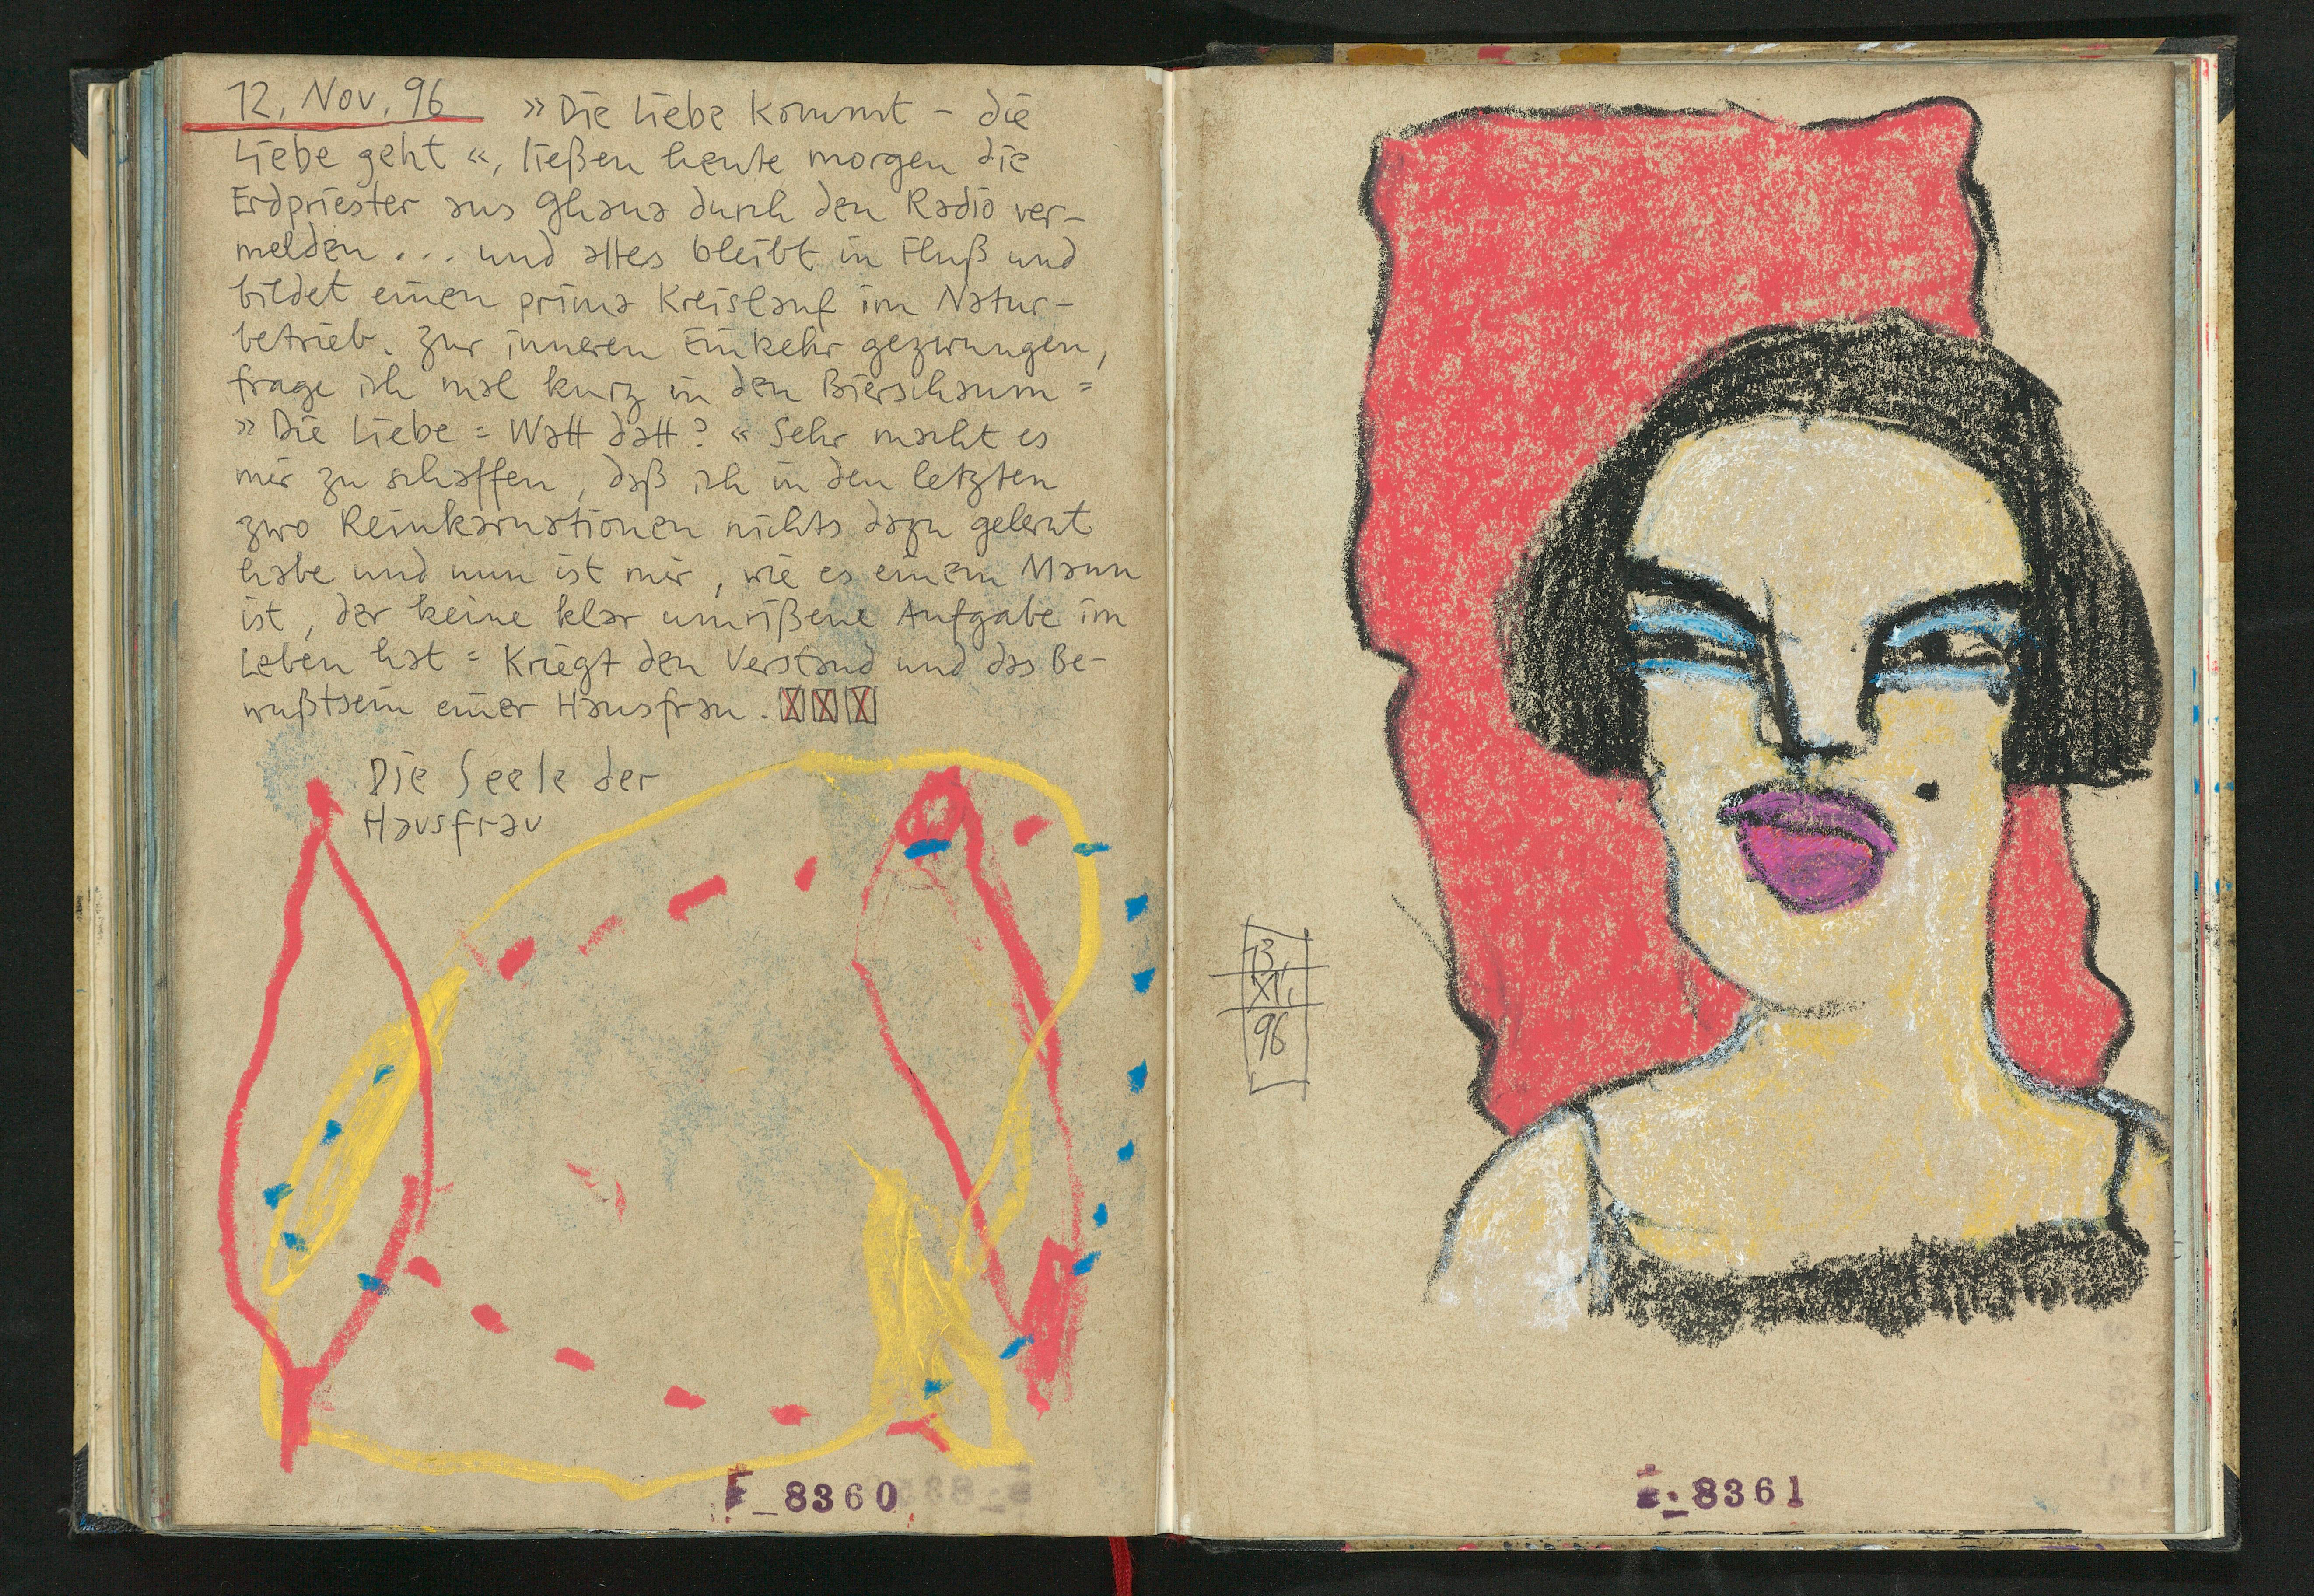 12. Nov. 96 »Die Liebe kommt – die
Liebe geht«, ließen heute morgen die
Erdpriester aus Ghana durch den Radio ver-
melden... und alles bleibt in Fluß und
bildet einen prima Kreislauf im Natur-
betrieb. Zur inneren Einkehr gezwungen,
frage ich mal kurz in den Bierschaum =
»Die Liebe = Watt datt?« Sehr macht es
mir zu schaffen, daß ich in den letzten
zwo Reinkarnationen nichts dazu gelernt
habe und nun ist mir, wie es einem Mann
ist, der keine klar umrißene Aufgabe im
Leben hat = Kriegt den Verstand und das Be-
wußtsein einer Hausfrau.
Die Seele der
Hausfrau
_8360
13.
XI.
96
_8361